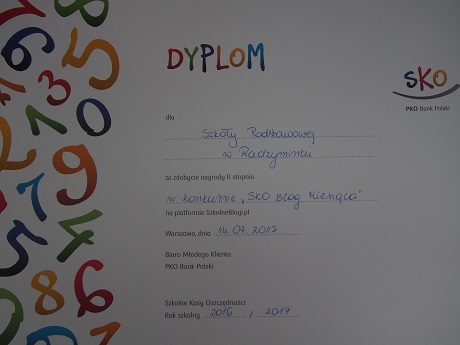 DYPLOM
SKO
PKO Bank Polski
dla
Szkoły Podstawowej
w Radzyminku
za zdobycie nagrody II stopnia
w konkursie „SKO Blog Miesiąca"
na platformie SzkolneBlogi.pl
Warszawa, dnia 14.07.2017
Biuro Młodego Klienta
PKO Bank Polski
Szkolne Kasy Oszczędności
Rok szkolny 2016 / 2017